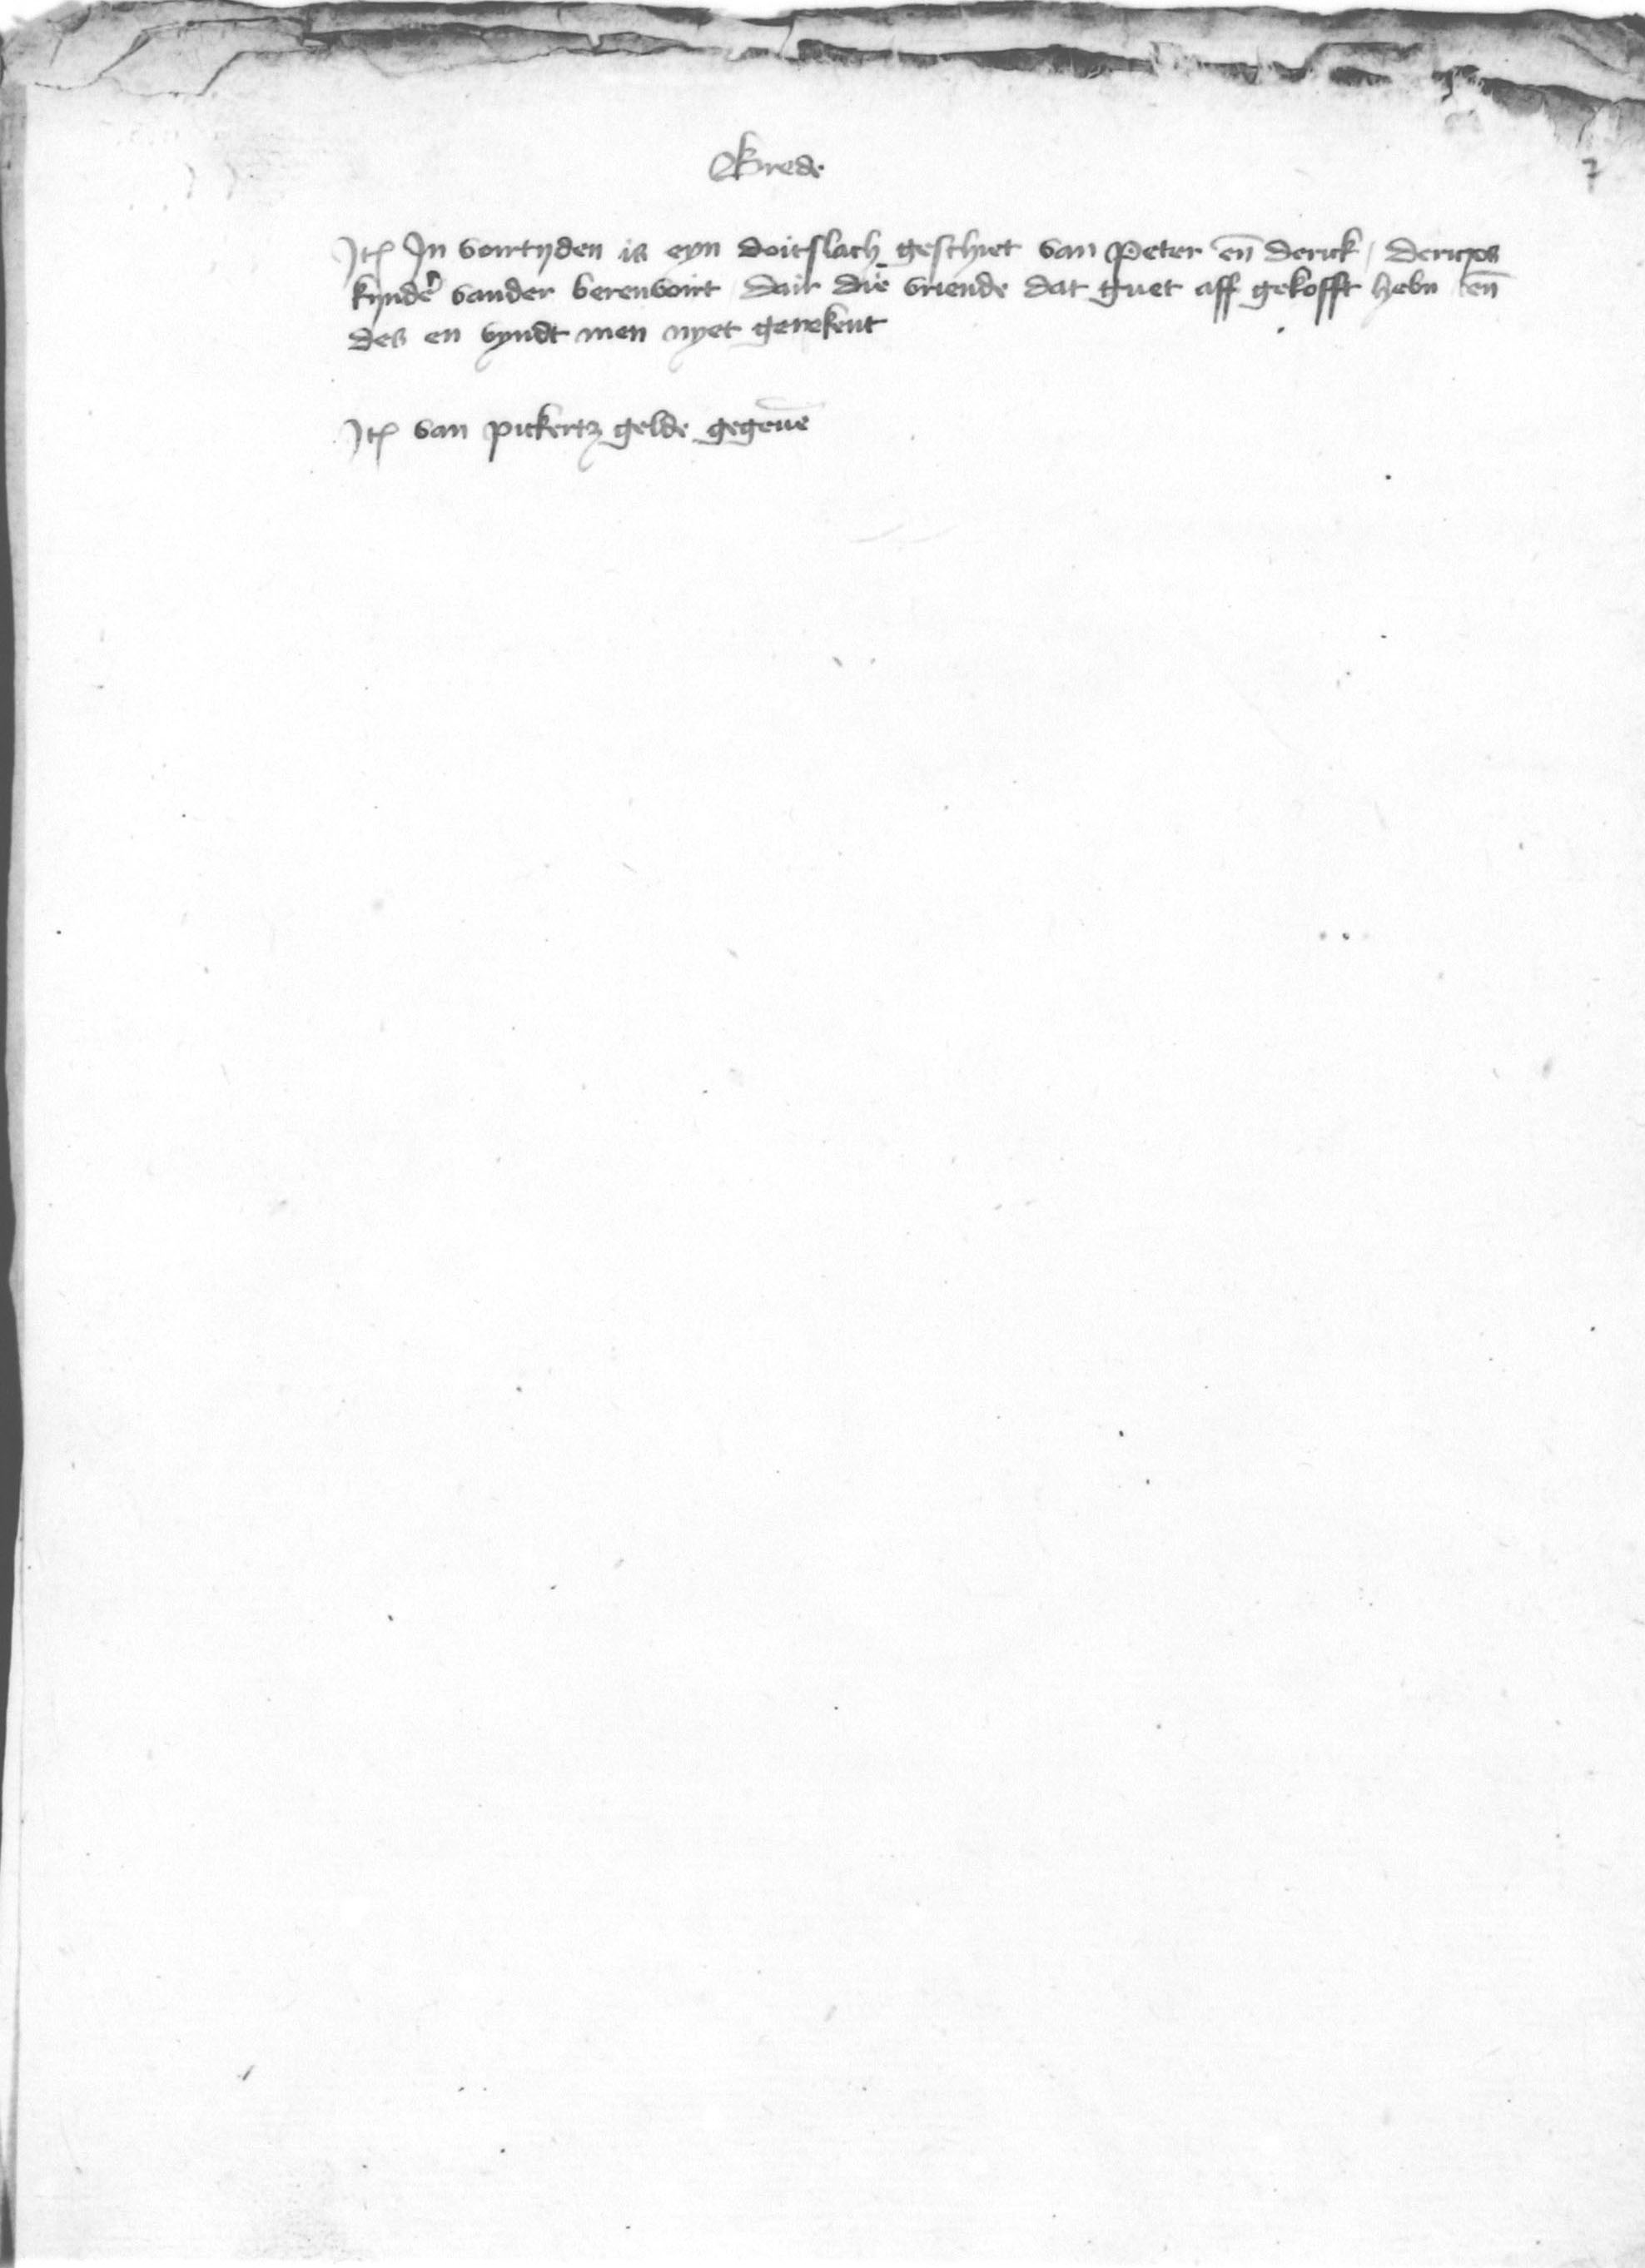 Brede
7
Itē In vortyden is eyn doitslach geschiet van Peter eñ derick / dericxs
kyndēr vander berenvoirt dair die vriende dat guet aff gekofft hebn eñ
des en vyndt men nyet gerekent
Itē van pickertz gelde gegeuē